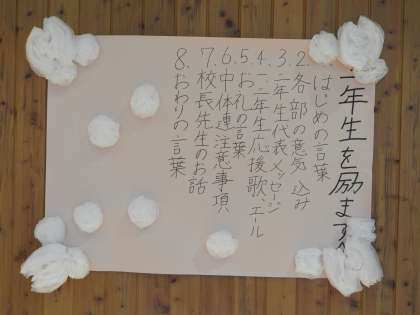 三年生を励ます会
1.はじめの言葉
2.各部の意気込み
3.三年生代表メッセージ
4.一、二年生応援歌、エール
5.お礼の言葉
6.中体連注意事項
7.校長先生のお話
8.おわりの言葉